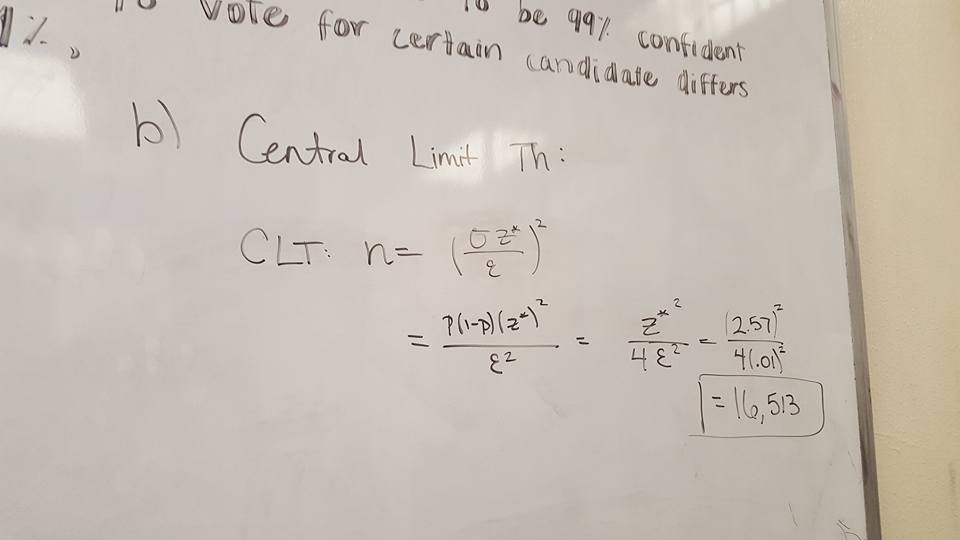 vote to be 99% confident
1%, for certain candidate differs
b) Central Limit Th:
CLT: n= (σz*/ε)²
= p(1-p)(z*)²/ε² = z*²/4ε² = (2.57)²/4(.01)²
= 16,513